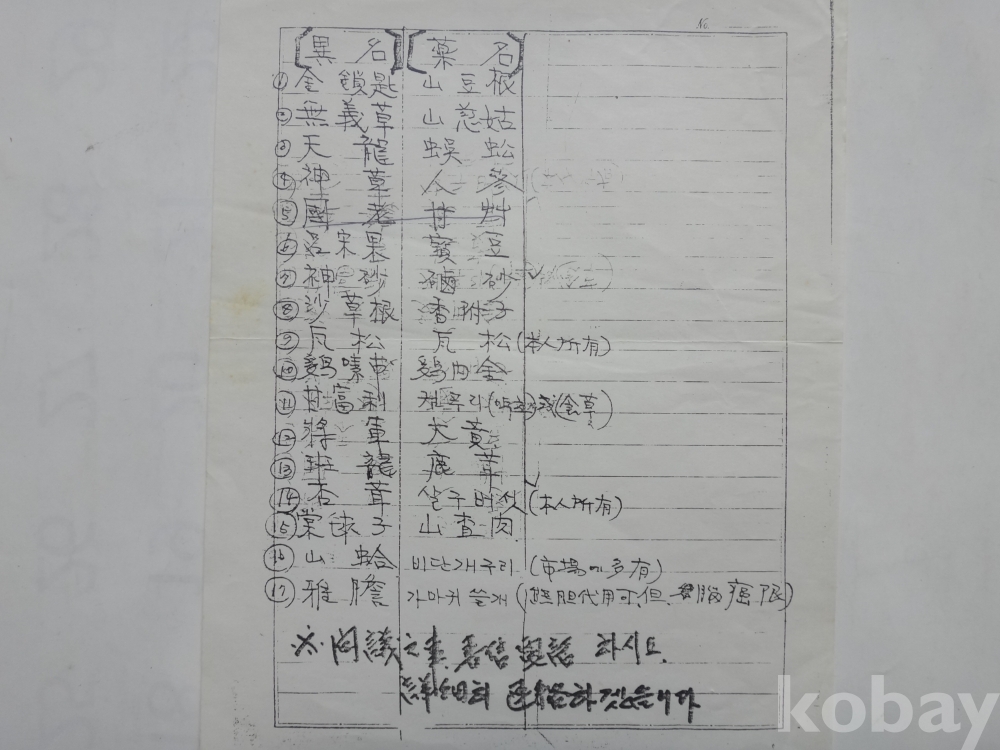 No.
[異名] [薬名]
① 金鎖匙 山豆根
② 無義草 山慈姑
③ 天龍 蜈蚣
④ 神草 人參
⑤ 國老 甘草
⑥ 呂宋果 寶豆
⑦ 神砂 硇砂
⑧ 沙草根 香附子
⑨ 瓦松 瓦松 (本人所有)
⑩ 鷄嗉 鷄內金
⑪ 甘富利
⑫ 將軍 大黃
⑬ 斑龍 鹿茸
⑭ 杏茸 살구버섯 (本人所有)
⑮ 棠毬子 山査肉
⑯ 山蛤 비단개구리 (市場에 多有)
⑰ 雅膽 가마귀 쓸개 (熊胆代用可, 但, 腦癌限)
※ 하시도
詳細히 連絡하겠습니다
kobay